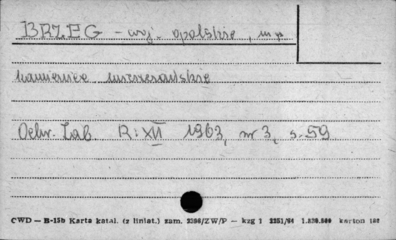 BRZEG - woj. opolskie, mp
kamienice mieszczańskie
Ochr. Zab. R: XII 1963, nr 3, s. 59
CWD — B-15b Karta katal. (z liniat.) zam. 2286/ZW/P — kzg 1 2251/94 1.220.500 karton